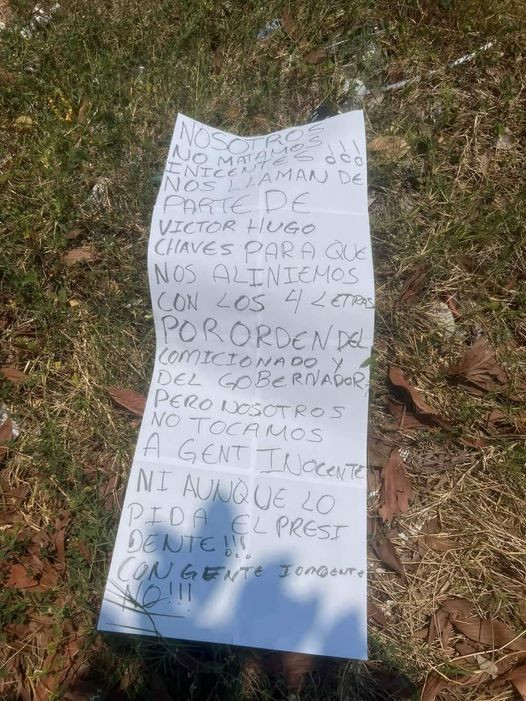 NOSOTROS
NO MATAMOS
INICENTES !!!
NOS LLAMAN DE
PARTE DE
VICTOR HUGO
CHAVES PARA QUE
NOS ALINIEMOS
CON LOS 4 LETRAS
POR ORDEN DEL
COMICIONADO Y
DEL GOBERNADOR,
PERO NOSOTROS
NO TOCAMOS
A GENT INOCENTE
NI AUNQUE LO
PIDA EL PRESI
DENTE!!!
CON GENTE
NO!!!